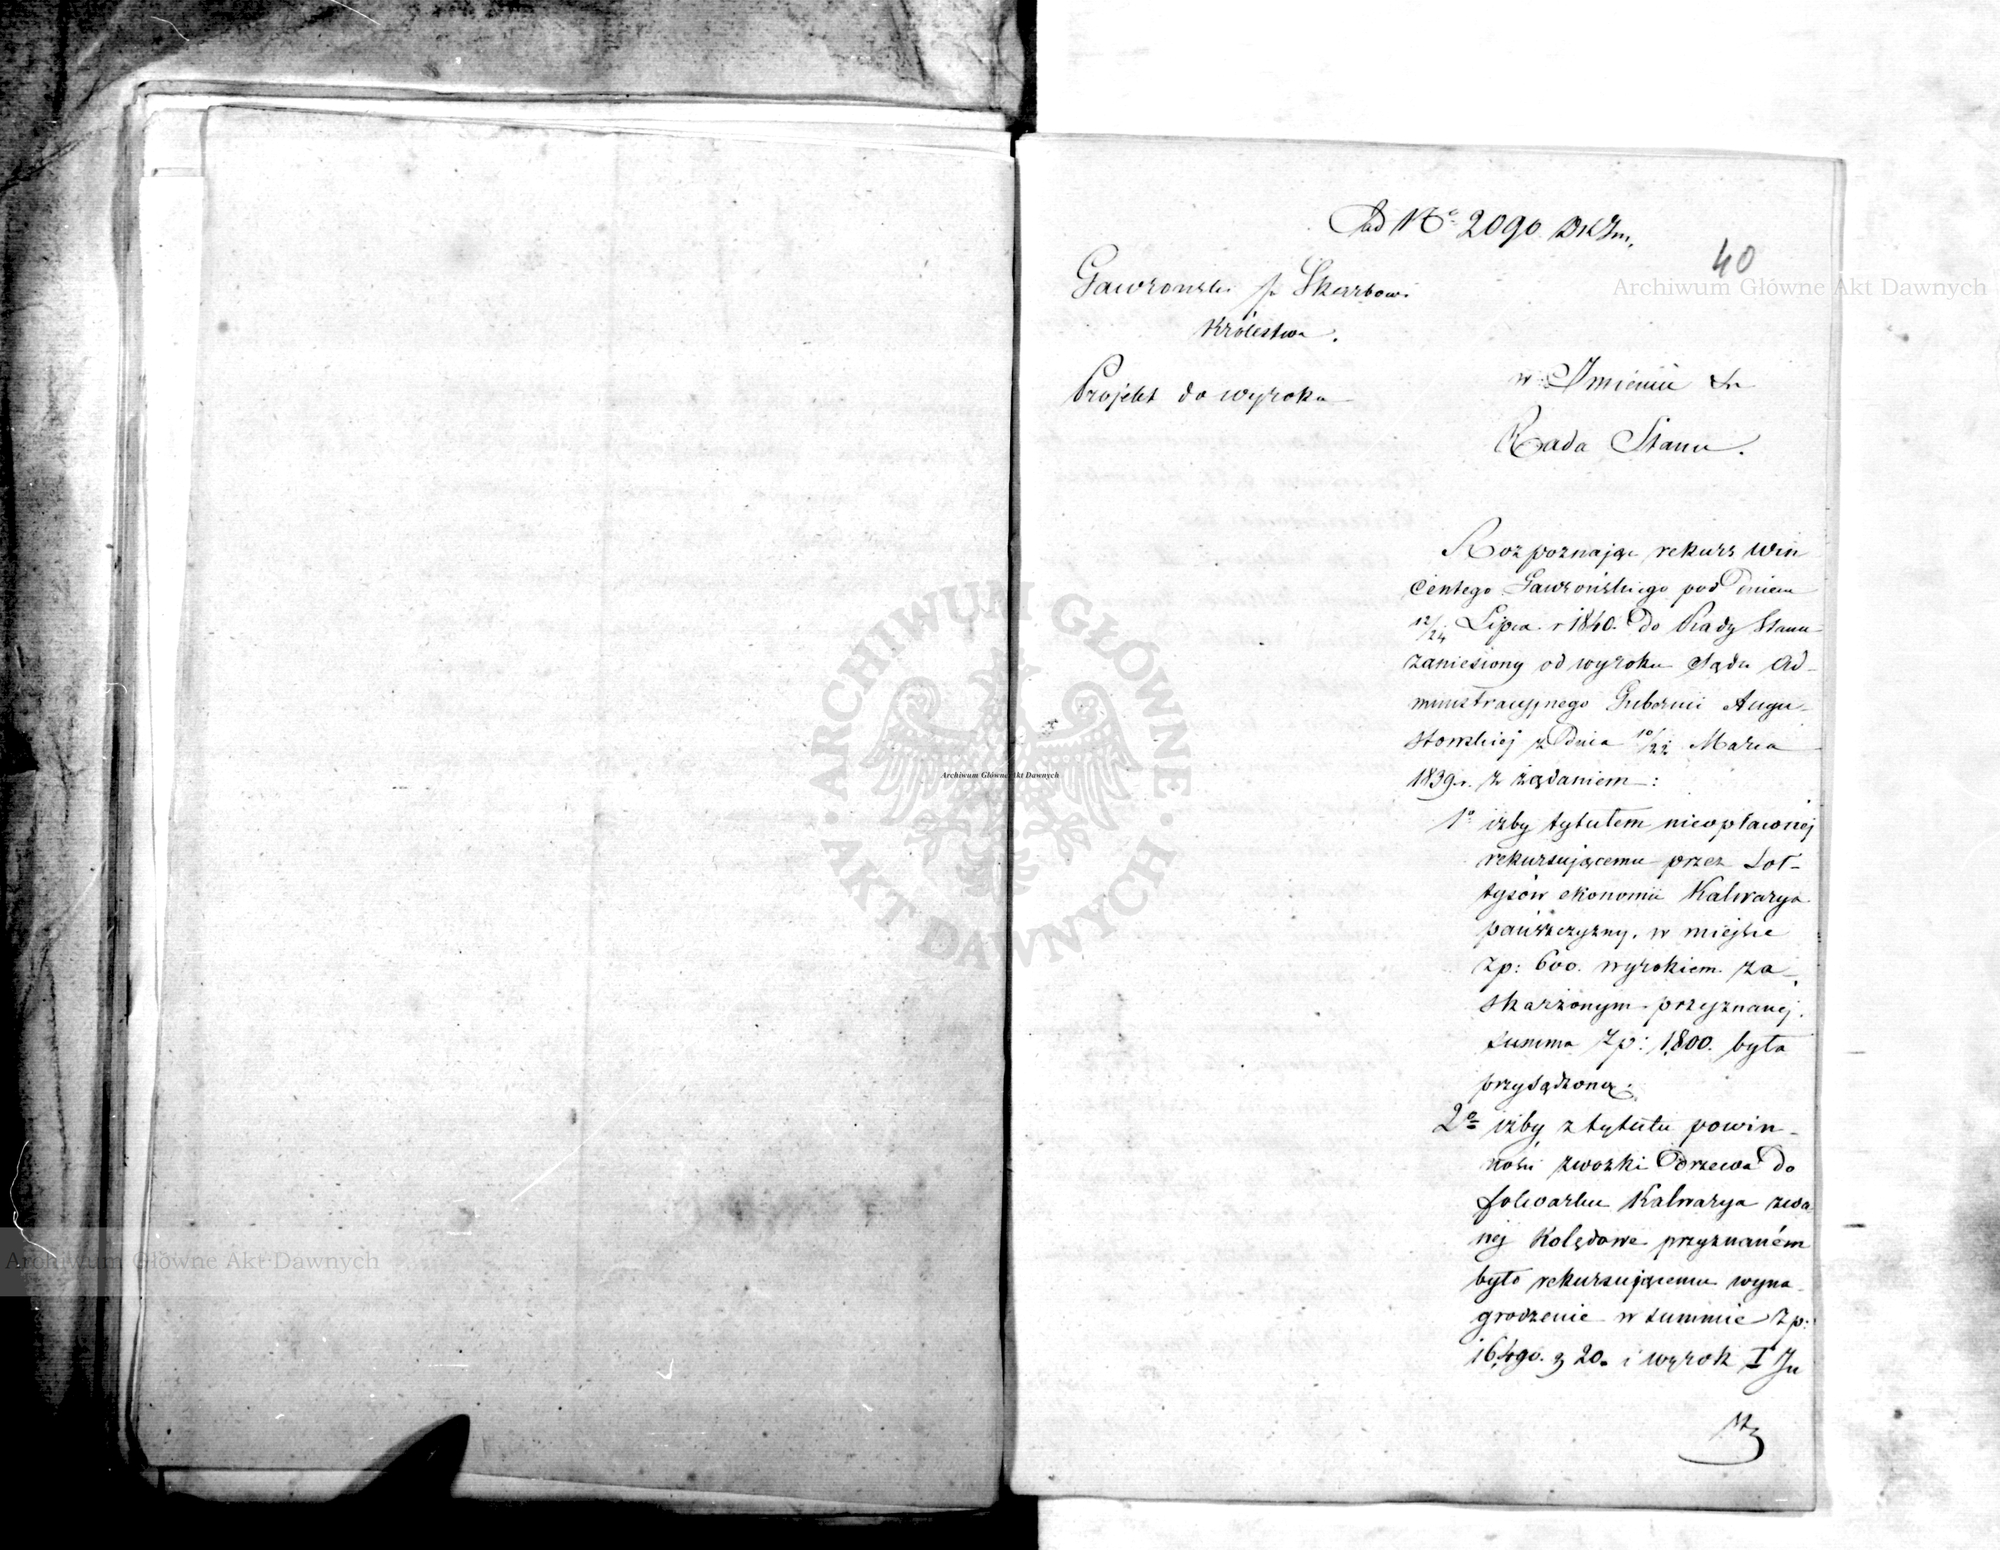 Ad No 2090
40
Gawroński p. Skarbowi
Królestwa.
Projekt do wyroku
w Imieniu
Rada Stanu.
Rozpoznając rekurs Win
centego Gawrońskiego pod Dniem
12/24 Lipca r 1840. Do Rady Stanu
zaniesiony od wyroku Sądu Ad-
ministracyjnego Gubernii Augu-
stowskiej z Dnia 10/22 Marca
1839 r. z żądaniem:
1o iżby tytułem nieopłaconej
rekursującemu przez Soł-
tysów ekonomii Kalwarya
pańszczyzny, w miejsce
Zp: 600. wyrokiem za-
skarżonym przyznanej,
summa Zp: 1,800. była
przysądzoną;
2o iżby z tytułu powin-
ności zwózki Drzewa Do
folwarku Kalwarya zwa-
nej Kolędowe przyznaném
było rekursującemu wyna-
grodzenie w summie Zp:
16,490. g 20. i wyrok I In
Archiwum Główne Akt Dawnych
Archiwum Główne Akt Dawnych
Archiwum Główne Akt Dawnych
ARCHIWUM GŁÓWNE · AKT DAWNYCH ·